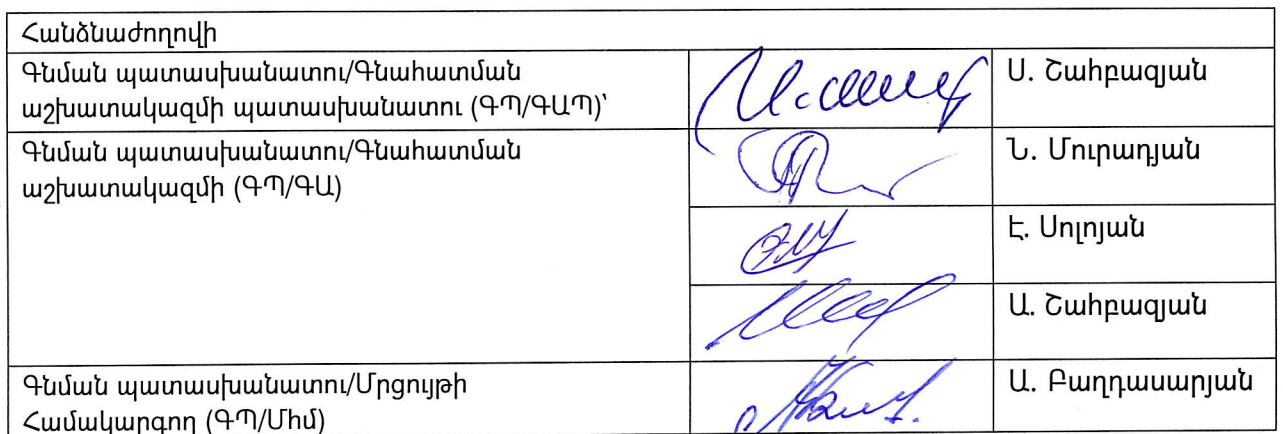 Հանձնաժողովի
Գնման պատասխանատու/Գնահատման
աշխատակազմի պատասխանատու (ԳՊ/ԳԱՊ)՝
Ս. Շահբազյան
Գնման պատասխանատու/Գնահատման
աշխատակազմի (ԳՊ/ԳԱ)
Ն. Մուրադյան
Է. Սոլոյան
Ա. Շահբազյան
Գնման պատասխանատու/Մրցույթի
Համակարգող (ԳՊ/Մհմ)
Ա. Բաղդասարյան